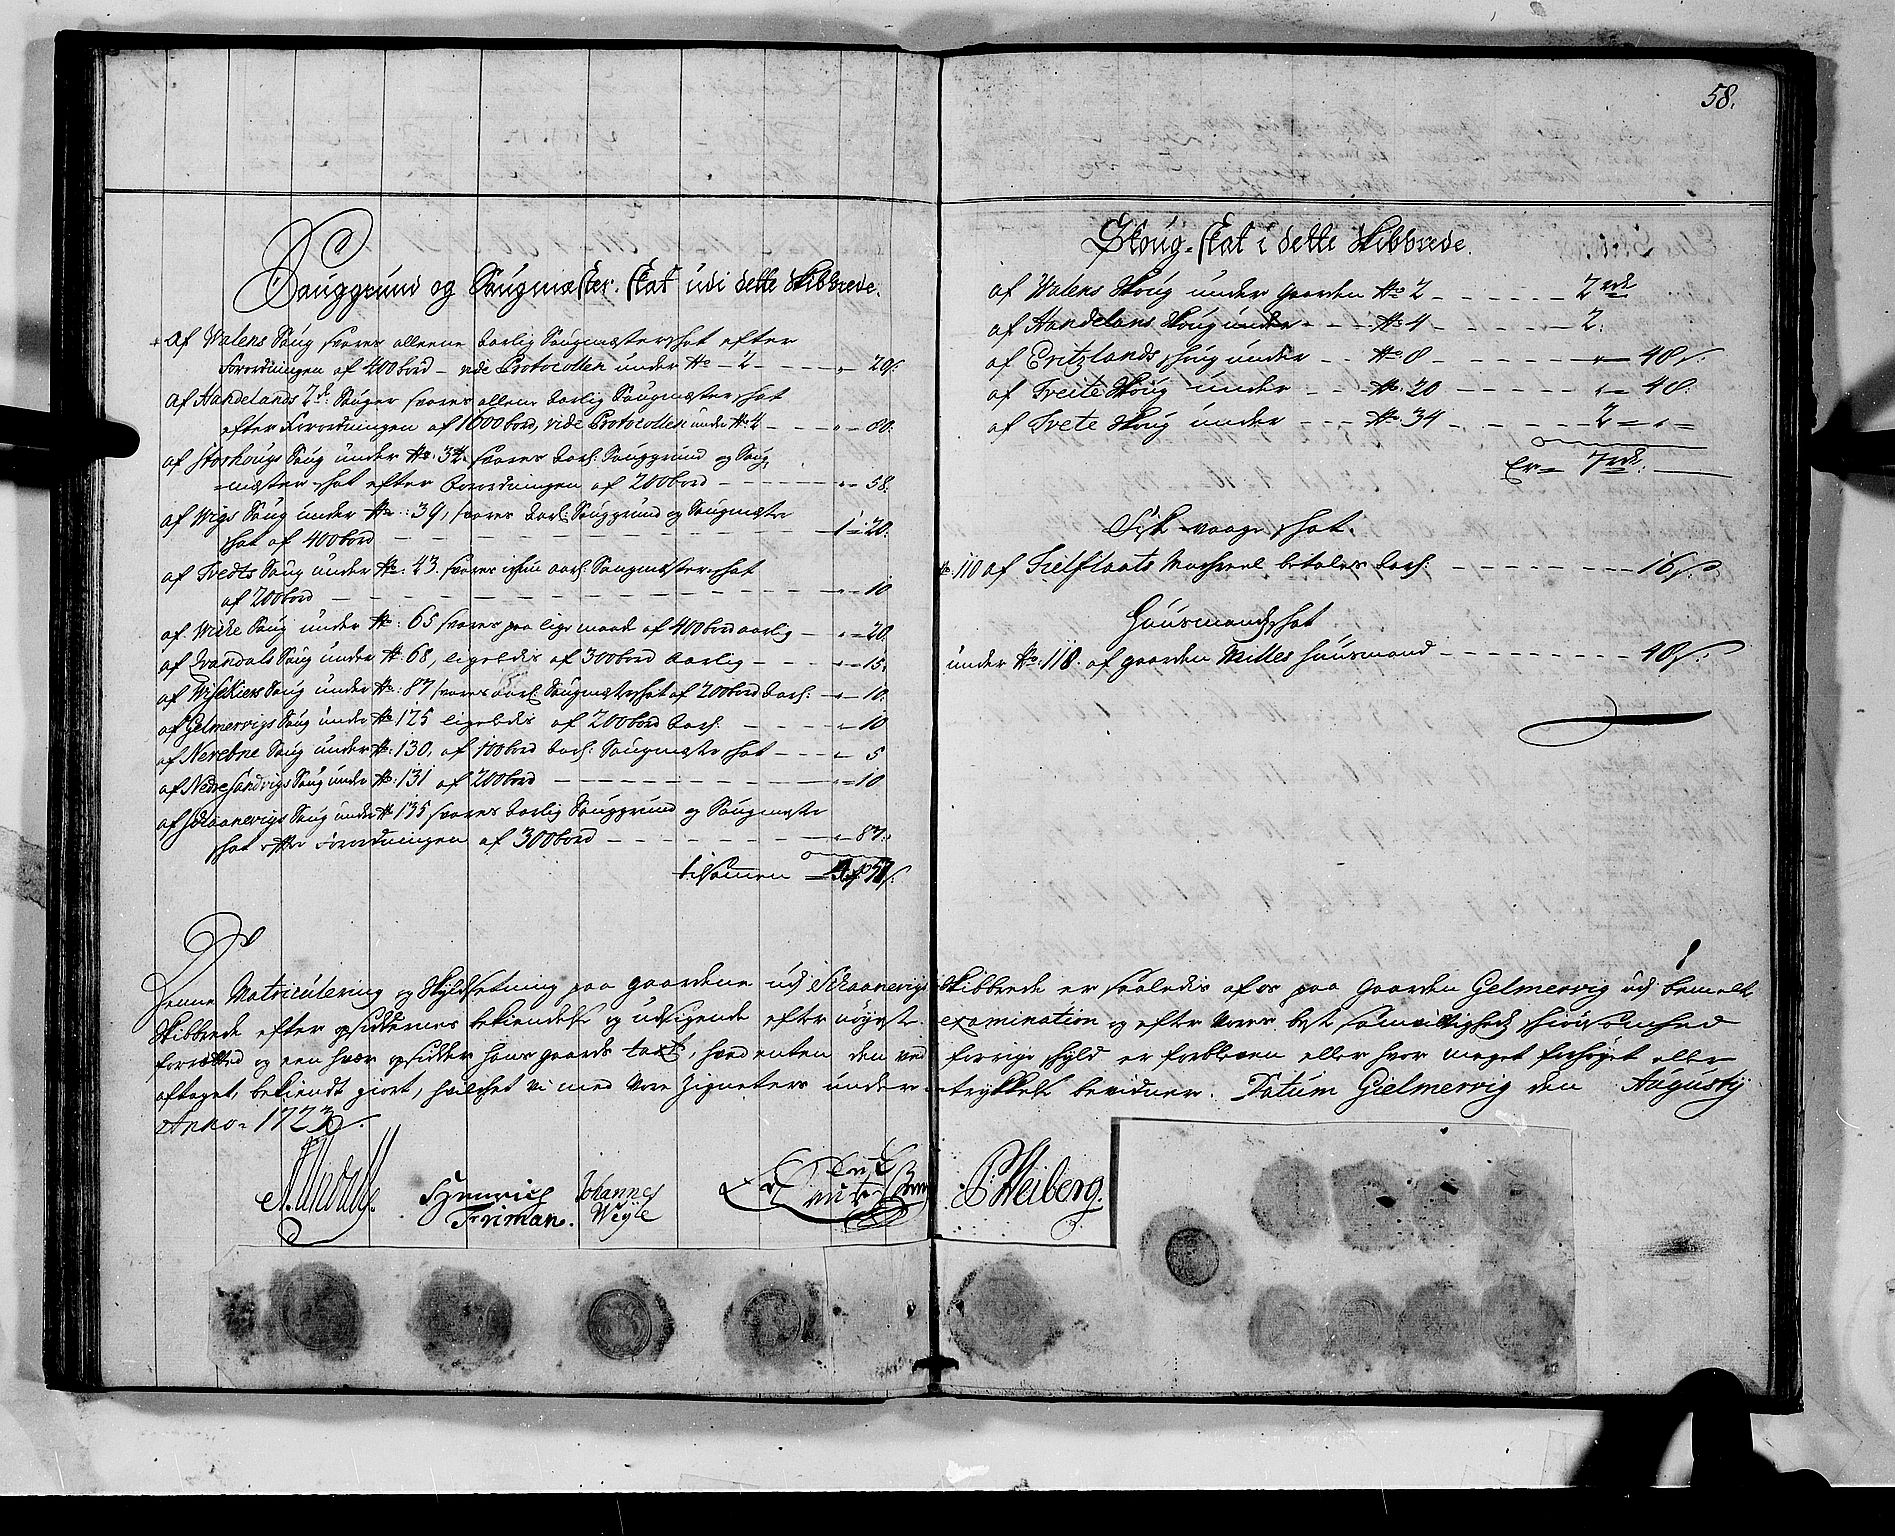 58.
Sauggrund og Saugmæster-skat udi dette Skibbrede.
af Walens Saug svares alleene Aarlig Saugmæster skat efter
forordningen af 400 bord – vide Protocollen under No – 2 – – – – " – 20 s.
af Handelands 2de Sauger svares allene Aarlig Saugmæster skat
efter Forordningen af 1600 bord, vide Protocollen under No 4 – – – " – 80.
af Storhougs Saug under No: 34. svares Aarl: Sauggrund og Saug,
=mæster skat efter Forordningen af 200 bord – – – – – " – 58.
af Wigs Saug under No: 39, svares Aarl: Sauggrund og Saugmæster
skat af 400 bord – – – – – – – 1 = 20.
af Tvedts Saug under No: 43 svares aarl: Saugmæster skat
af 200 bord – – – – – – – " – 10
af Wicke Saug under No: 65 svares paa lige maade af 400 bord aarlig – " = 20.
af Qvandals Saug under No: 68, ligeledis af 300 bord Aarlig – – – – " = 15.
af Saug under No: 87 svares aarl: Saugmæster skat af 200 bord Aarl: – " 10.
af Gelmervigs Saug under No 125 ligeledis af 200 bord Aarl: – – – – " 10
af Nerebøe Saug under No: 130, af 100 bord Aarl: Saugmæster skat – – – " 5
af Nedre Sandvigs Saug under No: 131 af 200 bord – – – – – – " = 10
af Schaanevigs Saug under No 135 svares Aarlig Sauggrund og Saugmæster
skat efter Forordningen af 300 bord – – – – – – " – 87.
tilsamen
Skoug-skat i dette Skibbrede.
af Walens Skoug under Gaarden No 2 – – – – – – 2 rdr
af Handelans Skoug under – – – No 4 – – – – – 2:
af Eritzlands Skoug under – – No 8 – – – – – " – 48 s.
af Tveite Skoug under – – – No: 20 – – – – – " – 48.
af Tvete Skoug under – – – No 34 – – – – – – 2 = " =
Er = 7 rdr. –
Fisk-vaage skat.
No: 110 af Fielflaats betales Aarl: – – – – – – – – 16 s.
Huusmands skat
under No: 118. af gaarden Milles Huusmand – – – – – – – 48 s.
Denne Matriculering og Skyldsetning paa gaardene udj Schaanevigs Skibbrede er saaledis af os paa Gaarden Gelmervig udj bemelte
Skibbrede efter opsiddernes bekiendelse og udsigende efter nøyest examination og efter vores best samvittigheds
forrætted og een hver opsidder hans gaards taxt, hvad enten den ved forrige skyld er forbleven eller hvor meget forhøyet eller
aftaget, bekiendt giort, hvilchet vi med vore Zigneters under = trykkelse bevidner. Datum Gielmervig den Augustij
Anno = 1723.
Henrich
Friman.
Johannes
Weyle
P. Weiberg.